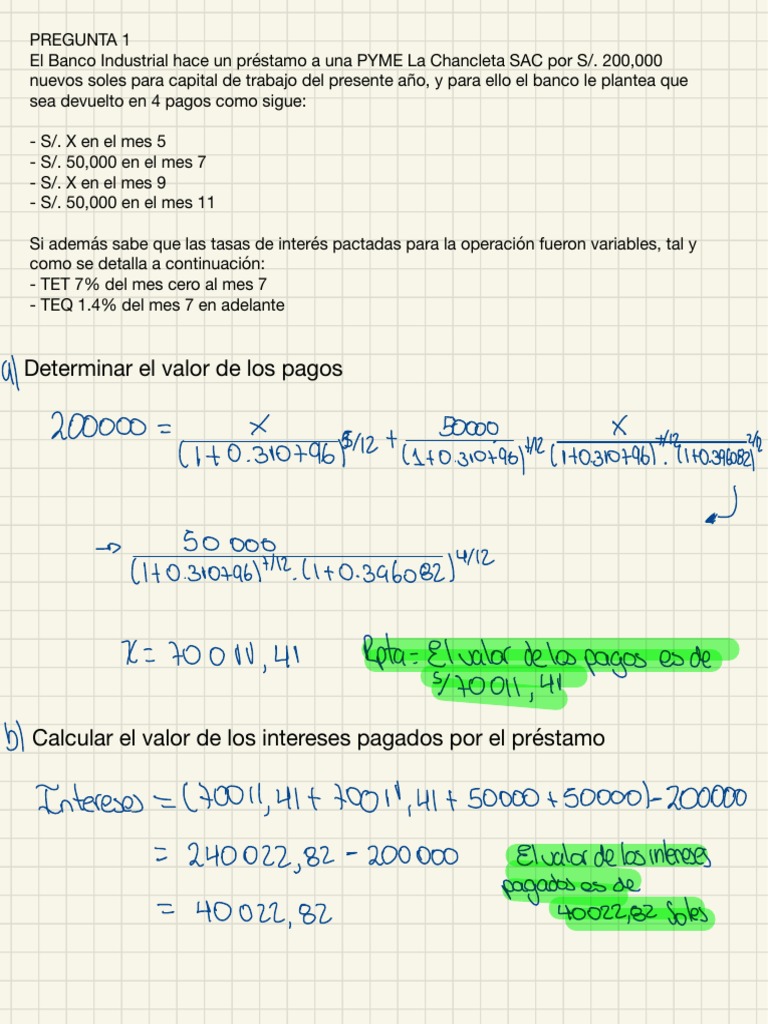 PREGUNTA 1
El Banco Industrial hace un préstamo a una PYME La Chancleta SAC por S/. 200,000
nuevos soles para capital de trabajo del presente año, y para ello el banco le plantea que
sea devuelto en 4 pagos como sigue:
- S/. X en el mes 5
- S/. 50,000 en el mes 7
- S/. X en el mes 9
- S/. 50,000 en el mes 11
Si además sabe que las tasas de interés pactadas para la operación fueron variables, tal y
como se detalla a continuación:
- TET 7% del mes cero al mes 7
- TEQ 1.4% del mes 7 en adelante
a) Determinar el valor de los pagos
200000 = X/(1+0.310796)^5/12 + 50000/(1+0.310796)^7/12 X/(1+0.310796)^7/12 . (1+0.396082)^2/12
→ 50 000/(1+0.310796)^7/12 . (1+0.396082)^4/12
X = 70 011,41 Rpta = El valor de los pagos es de
S/70 011,41
b) Calcular el valor de los intereses pagados por el préstamo
Intereses = (70011,41 + 70011,41 + 50000 + 50000) - 200000
= 240022,82 - 200000 El valor de los intereses
pagados es de
= 40022,82 40022,82 Soles